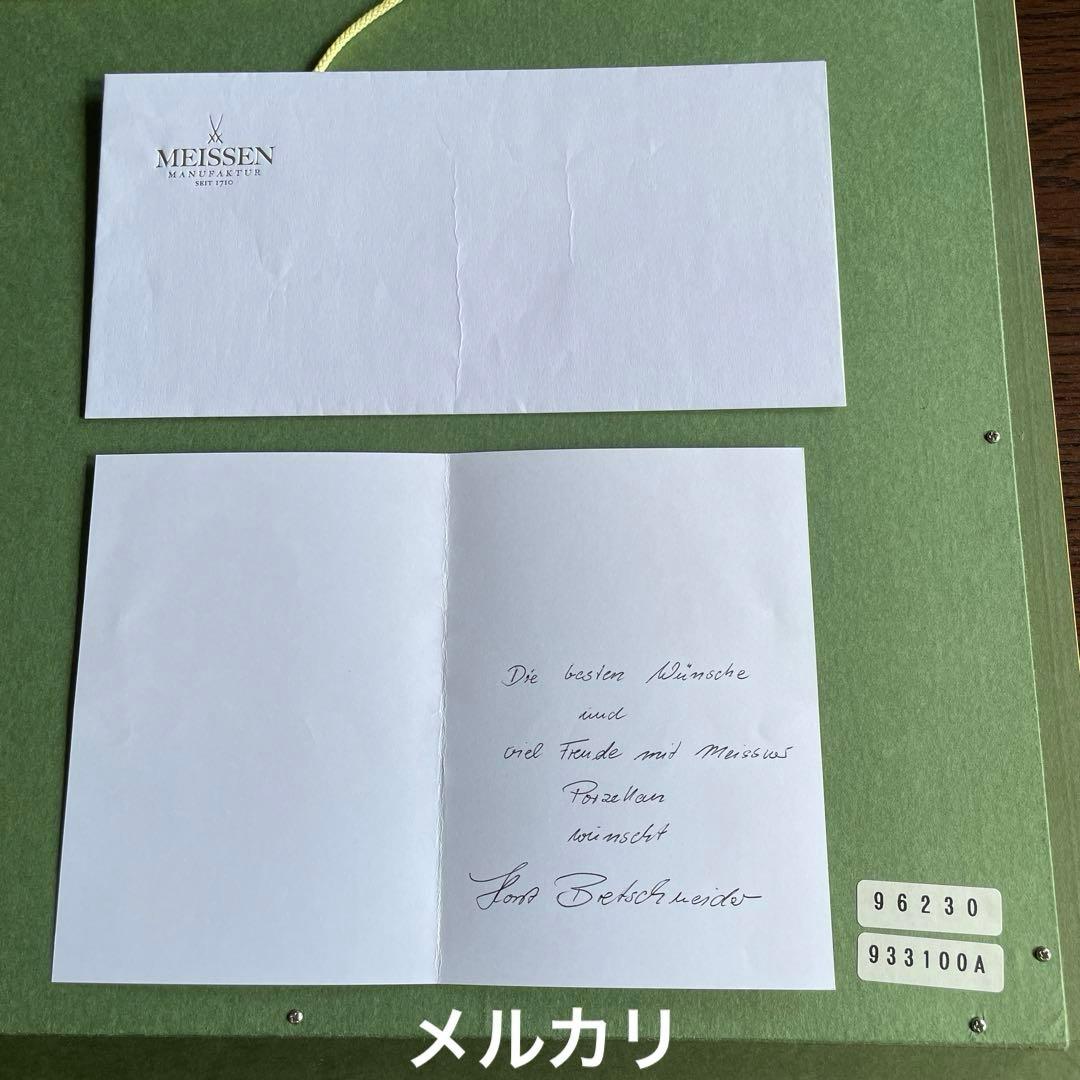 MEISSEN
MANUFAKTUR
SEIT 1710
Die besten Wünsche
und
viel Freude mit Meissner
Porzellan
wünscht
Horst Bretschneider
96230
933100A
メルカリ